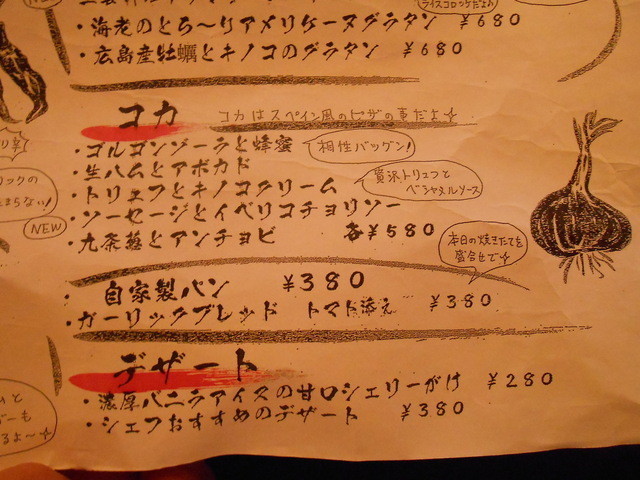 ライスコロッケだよ♪
・海老のとろ〜りアメリケーヌグラタン ¥680
・広島産牡蠣とキノコのグラタン ¥680
コカ コカはスペイン風のピザの事だよ
・ゴルゴンゾーラと蜂蜜 相性バッグン!
・生ハムとアボカド
・トリュフとキノコクリーム 贅沢トリュフとベシャメルソース
・ソーセージとイベリコチョリソー
NEW
・九条葱とアンチョビ 各¥580
本日の焼きたてを
盛合せで
・自家製パン ¥380
・ガーリックブレッド トマト添え ¥380
デザート
・濃厚バニラアイスの甘口シェリーがけ ¥280
・シェフおすすめのデザート ¥380